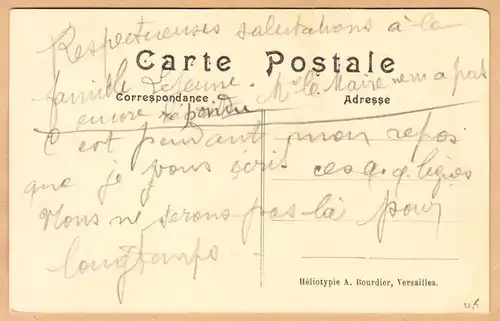 Respectueuses salutations à la
Carte Postale
famille Lejeune. Mr le Maire ne m a pas
Correspondance
Adresse
encore répondu
C est pendant mon repos
que je vous écris ces q.q lignes
Nous ne serons pas là pour
longtemps.
Héliotypie A. Bourdier, Versailles.